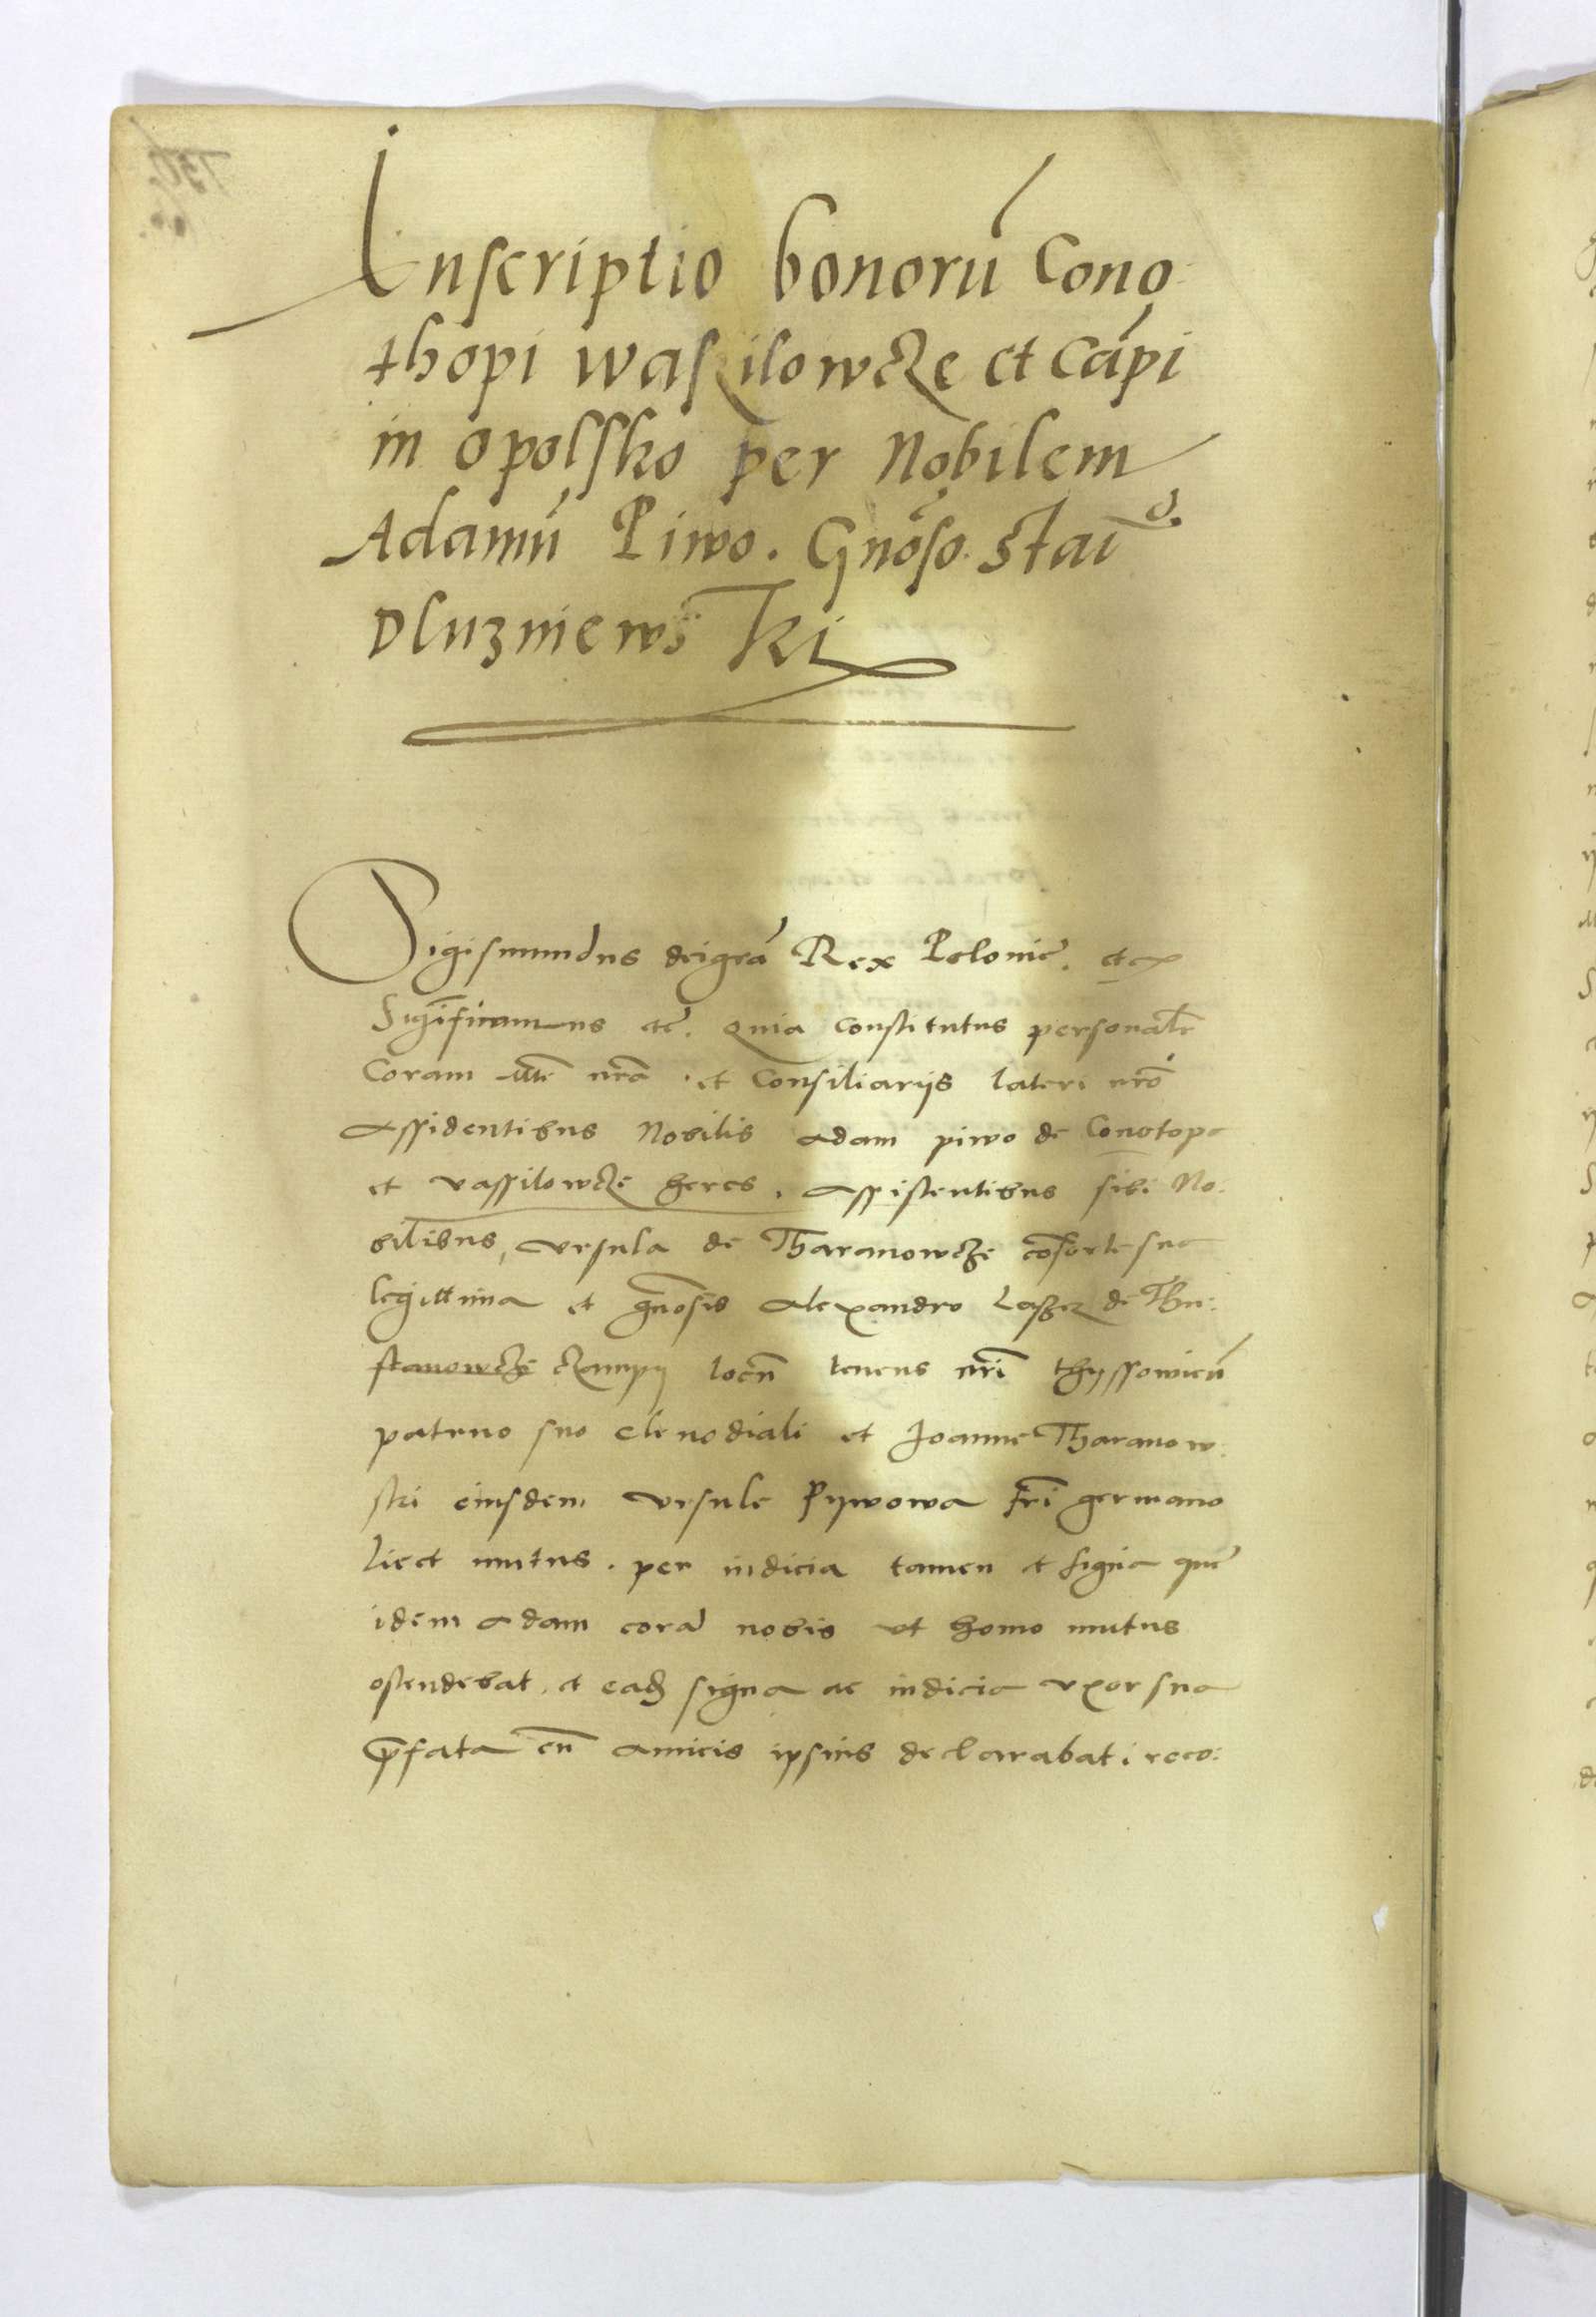 Inscriptio bonorū Cono
thopi waszilowcze et Cāpi
in opolsko per Nobilem
Adamū Piwo. Gnōso. Stai
Dluzniewski
Sigismundus dei grā Rex Poloniē. etc
Significamus etē. Quia constitutus personalr
Coram Mte nrā et Consiliarijs lateri nrō
assidentibus Nobilis adam piwo de Conotope
et vassilowcze heres. assistentibus sibi No:
bilibus, vrsula de Tharanowcze cōsorte sua
legittima et gnosis alexandro Laszcz de Thu:
stanowcze locū tenens nrī
patruo suo clenodiali et Joanne Tharanow:
ski eiusdem vrsule Pywowa frī germano
licet mutus. per indicia tamen et signa quē
idem adam corā nobis vt homo mutus
ostendebat, et eadē signa ac indicia vxor sua
p̄fata cū amicis ipsius declarabat: reco: